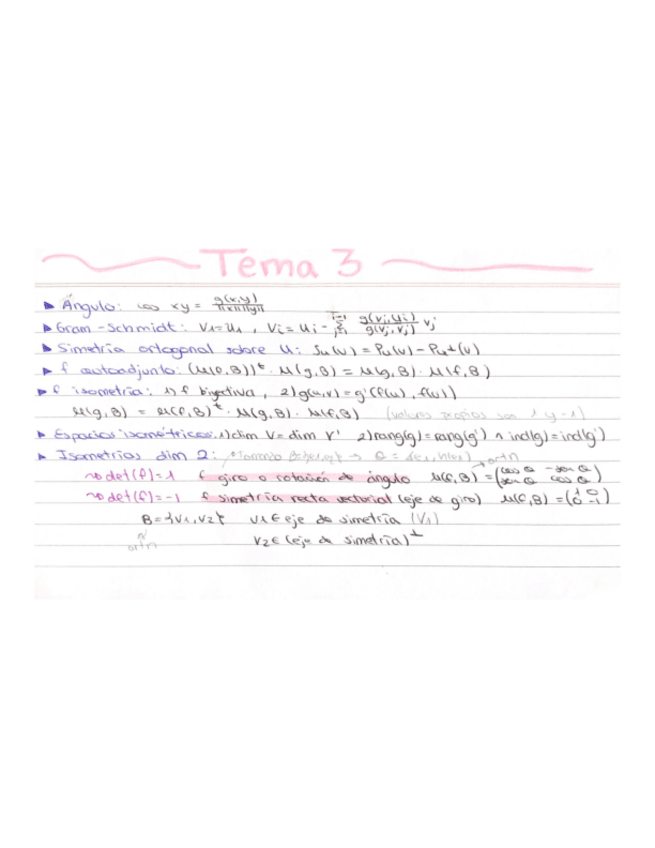 Tema 3
▶ Ángulo: cos xy = g(x,y) / ||x|| ||y||
▶ Gram-Schmidt: V₁=U₁, Vᵢ=Uᵢ - Σ_{j=1}^{i-1} g(Vⱼ,Uᵢ) / g(Vⱼ,Vⱼ) Vⱼ
▶ Simetría ortogonal sobre U: Sᵤ(v) = Pᵤ(v) - Pᵤ⊥(v)
▶ f autoadjunto: (M(f,B))ᵗ · M(g,B) = M(g,B) · M(f,B)
▶ f isometría: 1) f biyectiva, 2) g(u,v) = g'(f(u), f(v))
M(g,B) = M(f,B)ᵗ · M(g,B) · M(f,B) (valores propios son 1 y -1)
▶ Espacios isométricos: 1) dim V = dim V' 2) rang(g) = rang(g') ∧ ind(g) = ind(g')
▶ Isometrías dim 2:
↝ det(f)=1 f giro o rotación de ángulo M(f,B) = (cos θ -sen θ / sen θ cos θ) → ortn
↝ det(f)=-1 f simetría recta vectorial (eje de giro) M(f,B) = (1 0 / 0 -1)
B={V₁,V₂} V₁ ∈ eje de simetría (V₁)
ortn V₂ ∈ (eje de simetría)⊥